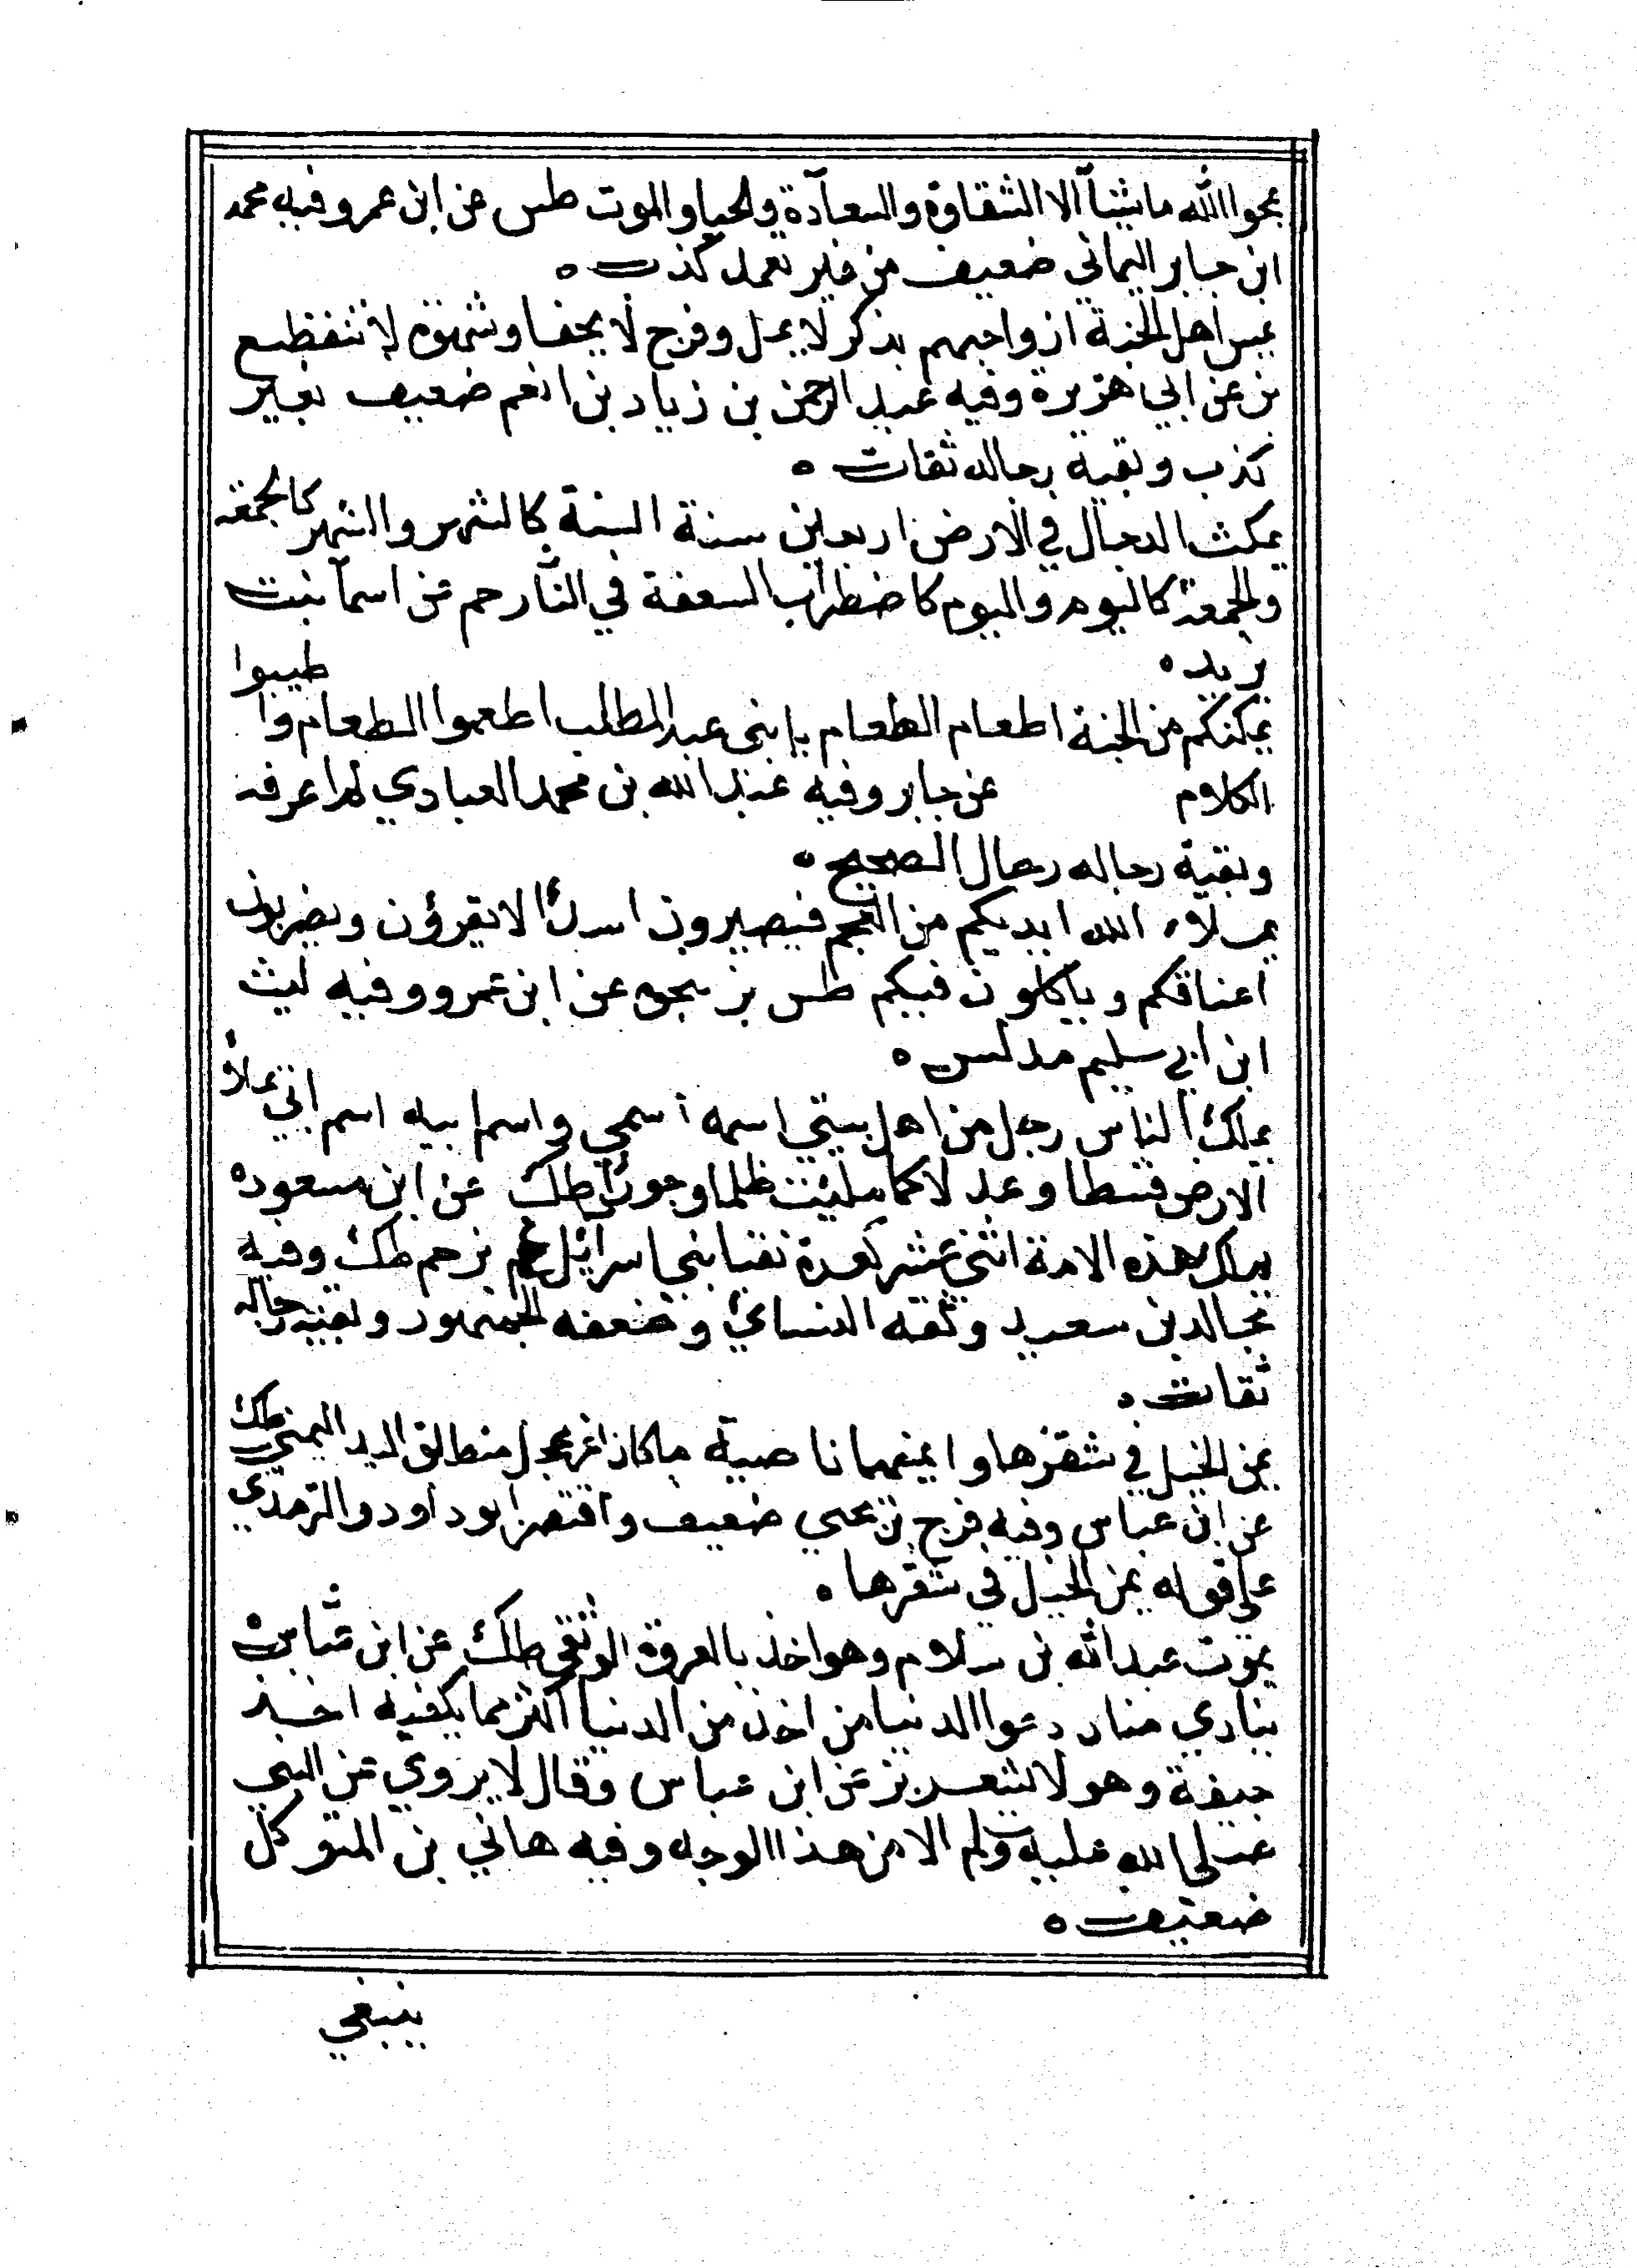 يمحوا الله ما يشآ الا الشقاوة والسعآدة والحيا والموت طس عن ابن عمر وفيه محمد
ابن جابر اليماني ضعيف من غير تعمد كذب ه
يمس اهل الجنة ازواجهم بذكر لا يمل وفرج لا يحفا وشهوة لا تنقطع
بز عن ابي هريرة وفيه عبد الرحمن بن زياد بن انعم ضعيف بغير
كذب وبقية رجاله ثقات ه
يمكث الدجال في الارض اربعين سنة السنة كالشهر والشهر كالجمعة
والجمعة كاليوم واليوم كاضطراب السعفة في النار حم عن اسمآ بنت
يزيد ه
يمكنكم من الجنة اطعام الطعام يا بني عبد المطلب اطعموا الطعام وا طيبوا
الكلام عن جابر وفيه عبد الله بن محمد العبادي لم اعرفه
وبقية رجاله رجال الصحيح ه
يملاء الله ايديكم من العجم فيصيرون اسدا لا يفرون ويضربون
اعناقكم وياكلون فيكم طس بز عن ابن عمرو وفيه ليث
ابن ابي سليم مدلس ه
يملك الناس رجل من اهل بيتي اسمه اسمي واسم ابيه اسم ابي يملأ
الارض قسطا وعدلا كما مليت ظلما وجورا طك عن ابن مسعود ه
يملك هذه الامة اثني عشر كعدة نقبا بني اسرائيل بز حم طك وفيه
مجالد بن سعيد وثقه النسائي وضعفه الجمهور وبقية رجاله
ثقات ه
يمن الخيل في شقرها وايمنها ناصية ما كان اغر محجل منطالق اليد اليمني طك
عن ابن عباس وفيه فرج بن يحيي ضعيف واقتصر ابو داود والترمذي
علي قوله يمن الخيل في شقرها ه
يموت عبد الله بن سلام وهو اخذ بالعروة الوثقي طك عن ابن عباس ه
ينادي مناد دعوا الدنيا من اخذ من الدنيا اكثر مما يكفيه اخذ
جيفة وهو لا يشعر بز عن ابن عباس وقال لا يروي عن النبي
صلي الله عليه وسلم الا من هذا الوجه وفيه هاني بن المتوكل
ضعيف ه
ينبغي